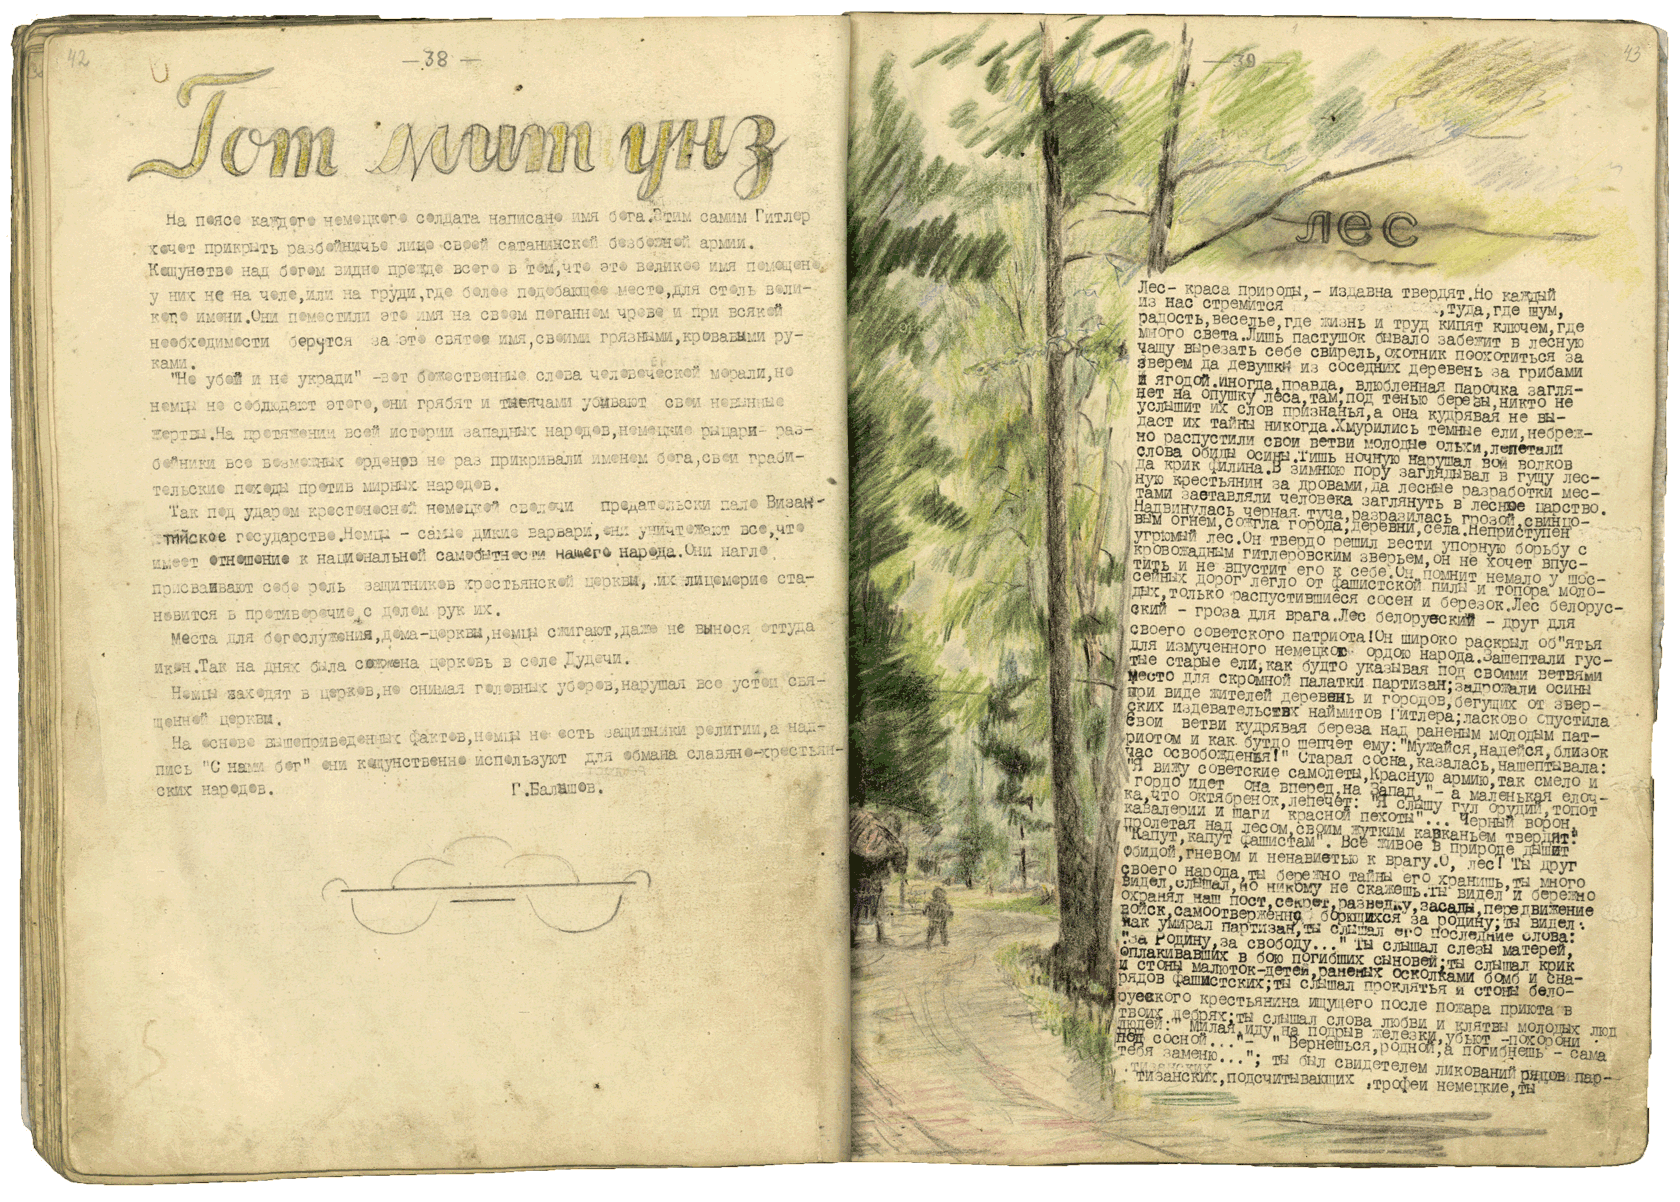 42
— 38 —
Гот мит унз
На поясе каждого немецкого солдата написано имя бога.Этим самим Гитлер
хочет прикрыть разбойничье лицо своей сатанинской безбожной армии.
Кощунство над богом видно прежде всего в том,что это великое имя помещено
у них не на челе,или на груди,где более подобающее место,для столь вели-
кого имени.Они поместили это имя на своем поганном чреве и при всякой
необходимости берутся за это святое имя,своими грязными,кровавыми ру-
ками.
"Не убой и не укради" -вот божественные слова человеческой морали,но
немцы не соблюдают этого,они грябят и тысячами убивают свои невинные
жертвы.На протяжении всей истории западных народов,немецкие рыцари- раз-
бойники все возможных орденов не раз прикривали именем бога,свои граби-
тельские походы против мирных народов.
Так под ударом крестоносной немецкой сволочи предательски пало Визан-
тийское государство.Немцы - самые дикие варвари,они уничтожают все,что
имеет отношение к национальной самобытности нашего народа.Они нагло
присваивают себе роль защитников крестьянской церкви, их лицемерие ста-
новится в противоречие с делом рук их.
Места для богослужения,дома-церквы,немцы сжигают,даже не вынося оттуда
икон.Так на днях была сожжена церковь в селе Дудичи.
Немцы заходят в церков,не снимая головных уборов,нарушая все устои свя-
щенной церквы.
На основе вышеприведенных фактов,немцы не есть защитники религии,а над-
пись "С нами бог" они кощунственно используют для обмана славяно-крестьян-
ских народов.
Г.Балышов.
43
— 39 —
лес
Лес- краса природы,- издавна твердят.Но каждый
из нас стремится ,туда,где шум,
радость,веселье,где жизнь и труд кипят ключем,где
много света.Лишь пастушок бывало забежит в лесную
чащу вырезать себе свирель,охотник поохотиться за
зверем да девушки из соседних деревень за грибами
и ягодой.Иногда,правда, влюбленная парочка загля-
нет на опушку леса,там,под тенью березы,никто не
услышит их слов признанья,а она кудрявая не вы-
даст их тайны никогда.Хмурились темные ели,небреж-
но распустили свои ветви молодые ольхи,лепетали
слова обиды осины.Тишь ночную нарушал вой волков
да крик филина.В зимнюю пору заглядывал в гущу лес-
ную крестьянин за дровами,да лесные разработки мес-
тами заставляли человека заглянуть в лесное царство.
Надвинулась черная туча,разразилась грозой,свинцо-
вым огнем,сожгла города,деревни,села.Неприступен
угрюмый лес.Он твердо решил вести упорную борьбу с
кровожадным гитлеровским зверьем,он не хочет впус-
тить и не впустит его к себе.Он помнит немало у шос-
сейных дорог легло от фашистской пилы и топора моло-
дых,только распустившиеся сосен и березок.Лес белорус-
ский - гроза для врага.Лес белоруеский - друг для
своего советского патриота!Он широко раскрыл об"ятья
для измученного немецкой ордою народа.Зашептали гус-
тые старые ели,как будто указывая под своими ветвями
место для скромной палатки партизан;задрожали осины
при виде жителей деревень и городов,бегущих от звер-
ских издевательств наймитов Гитлера;ласково опустила
свои ветви кудрявая береза над раненым молодым пат-
риотом и как бутдо шепчет ему:"Мужайся,надейся,близок
час освобождения!" Старая сосна,казалась,нашептывала:
"Я вижу советские самолеты,Красную армию,так смело и
гордо идет она вперед,на Запад. "- а маленькая елоч-
ка,что октябренок,лепечет: "Я слышу гул орудий,топот
кавалерии и шаги красной пехоты"... Черный ворон
пролетая над лесом,своим жутким карканьем твердят:
"Капут,капут фашистам". Все живое в природе дышит
обидой,гневом и ненавистью к врагу.О, лес! Ты друг
своего народа,ты бережно тайны его хранишь,ты много
видел,слышал,но никому не скажешь.Ты видел и бережно
охранял наш пост,секрет,разведку,засады,передвижение
войск,самоотверженно борющихся за родину;ты видел
как умирал партизан,ты слышал его последние слова:
"За Родину,за свободу..." Ты слышал слезы матерей,
оплакивавших в бою погибших сыновей;ты слышал крик
и стоны малюток-детей,раненых осколками бомб и сна-
рядов фашистских;ты слышал проклятья и стоны бело-
русского крестьянина ищущего после пожара приюта в
твоих дебрях;ты слышал слова любви и клятвы молодых люд
людей:" Милая,иду на подрыв железки,убьют -похорони
под сосной..."- " Вернешься,родной,а погибнешь - сама
тебя заменю..."; ты был свидетелем ликований рядов пар-
тизанских
тизанских,подсчитывающих ,трофеи немецкие,ты